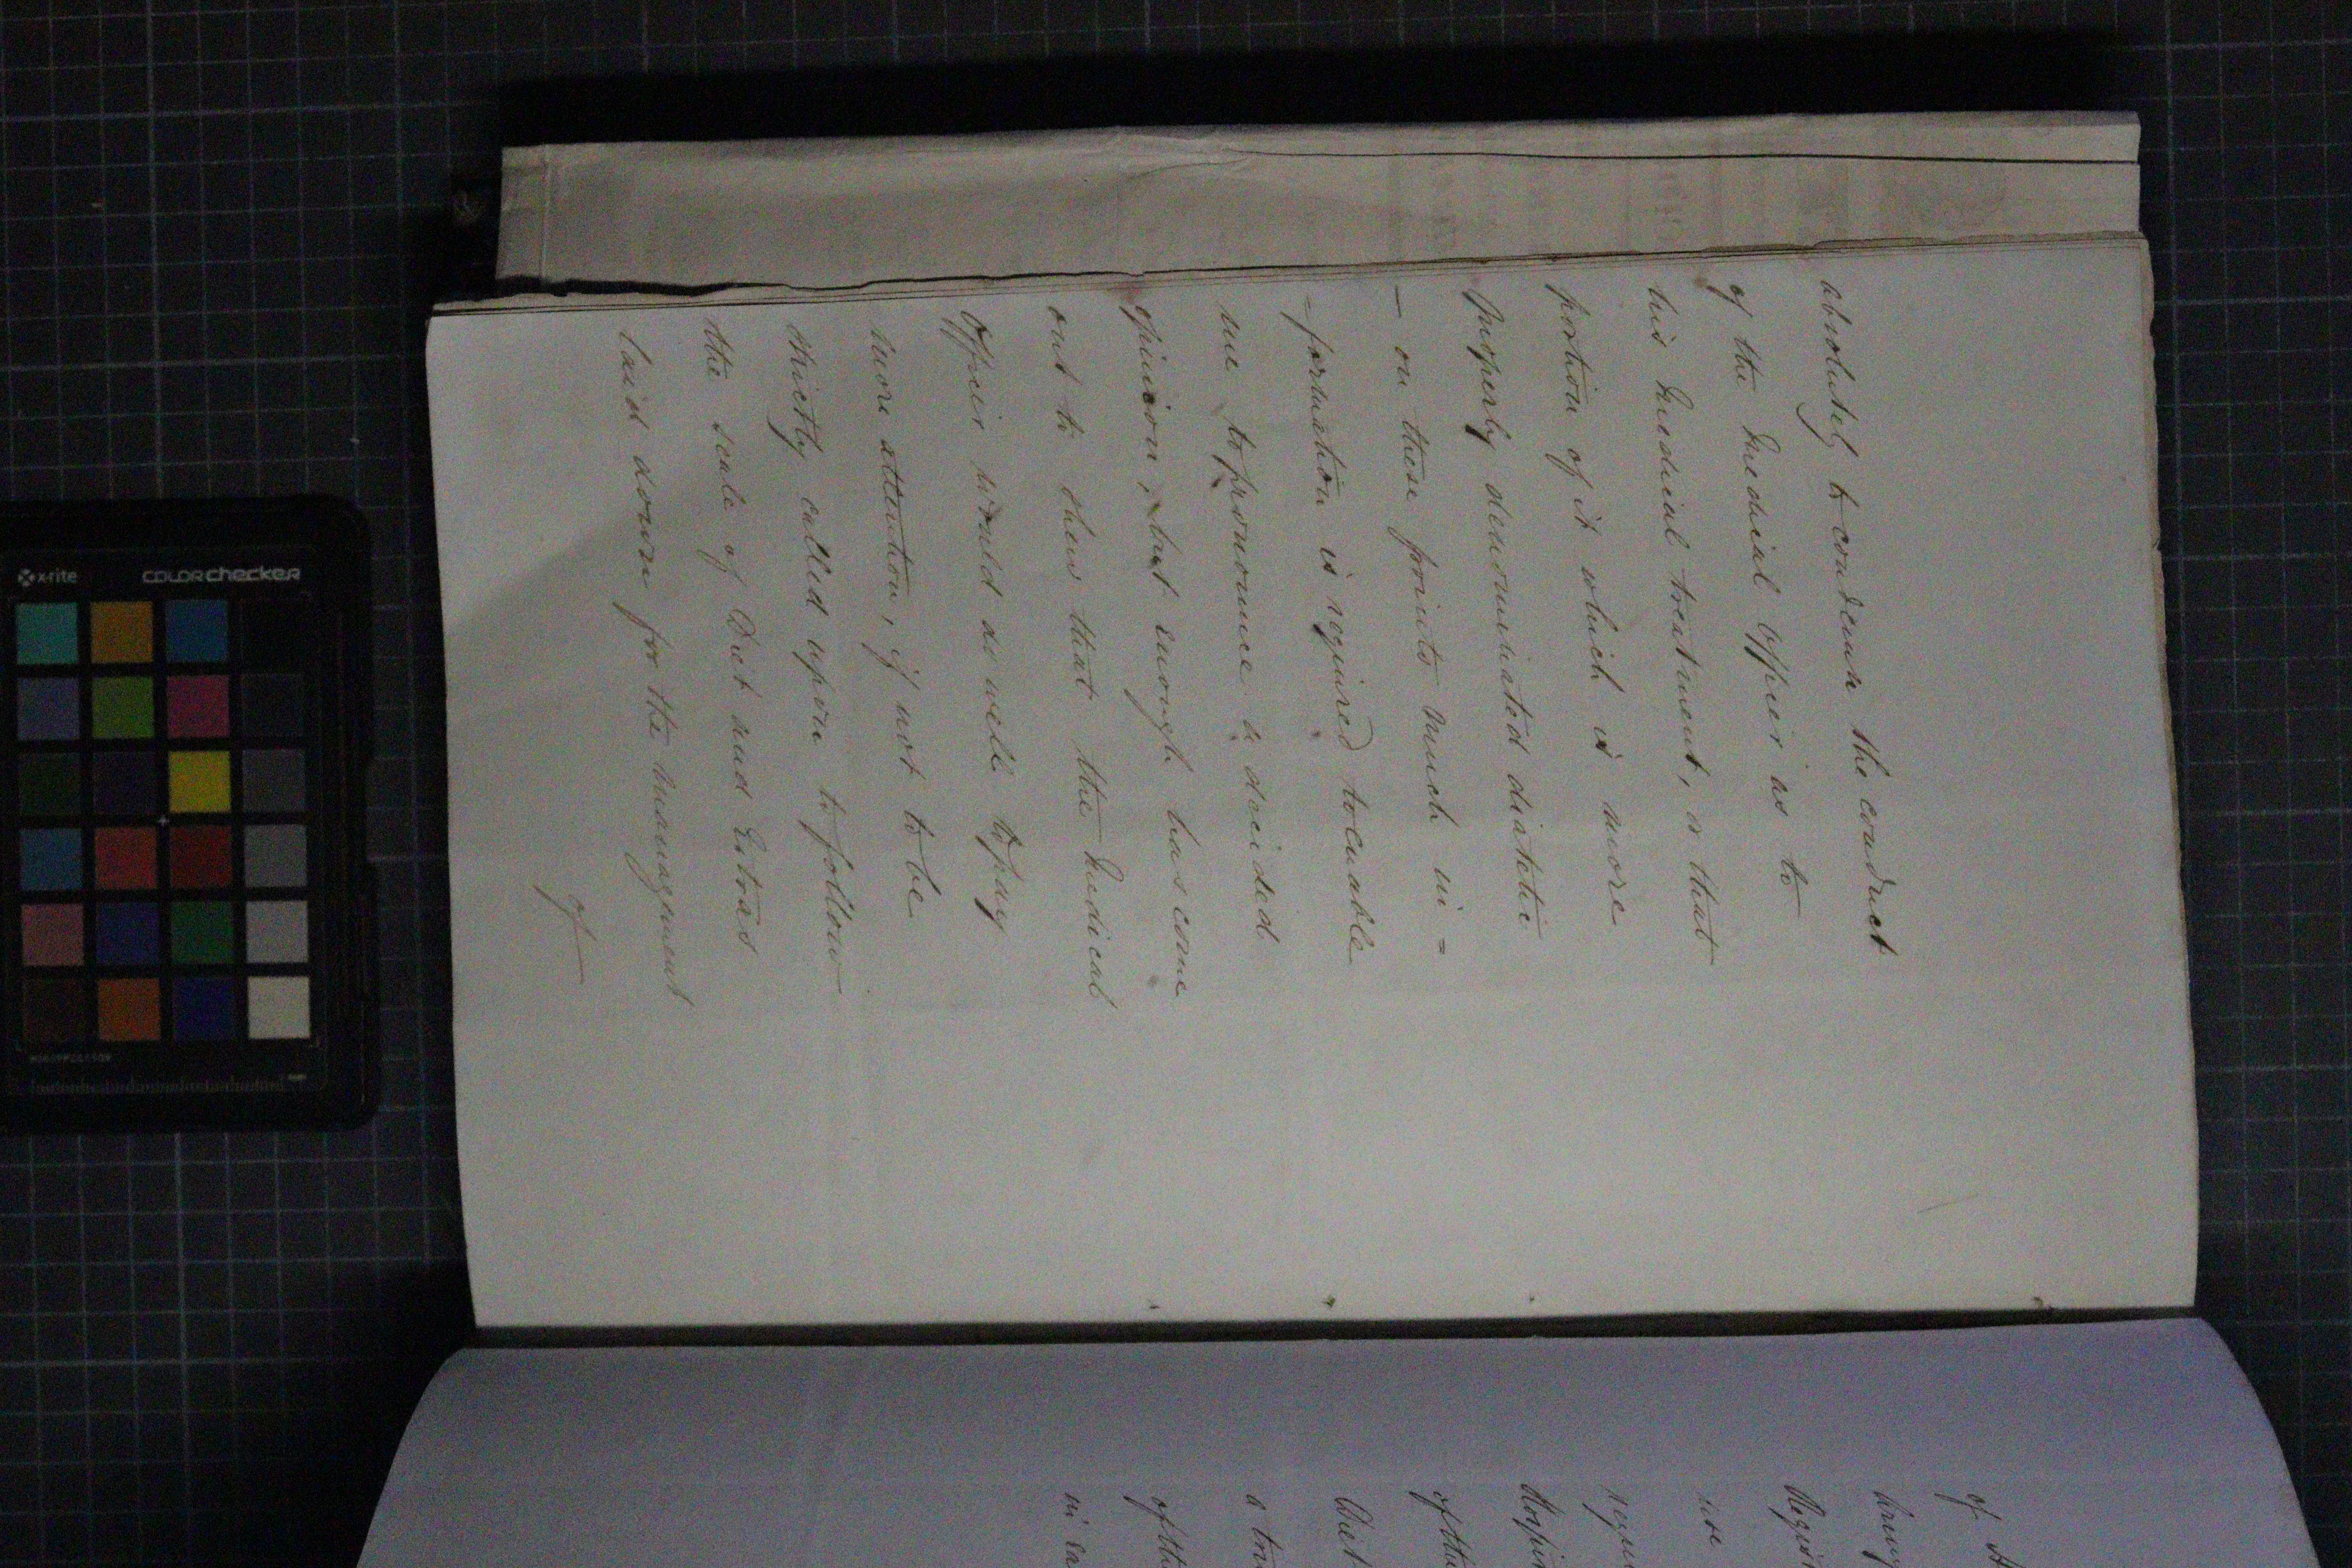 absolutely to condemn the conduct
of the Medical Officer as to
his Medical treatment, or that
portion of it which is more
properly denominated diatetic
— on these points much in =
- formation is required to enable
me to pronounce a decided
opinion, but enough has come
out to shew that the Medical
Officer would do well to pay
more attention, if not to be
strictly called upon to follow
the scale of Diet and Extras
laid down for the management
of
of
use
of the
Diet
of the
x-rite
colorchecker